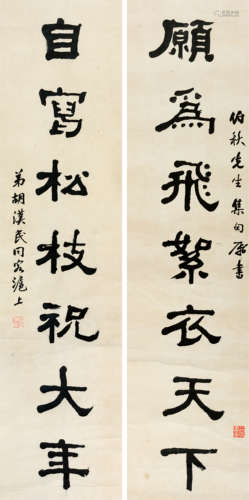 願為飛絮衣天下
伯秋先生集句屬書
自寫松枝祝大年
弟胡漢民同客滬上